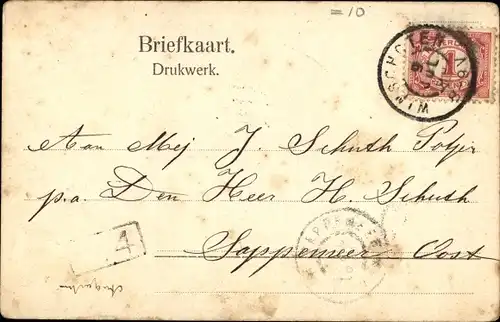 =10
Briefkaart.
Drukwerk.
WINSCHOTEN
1
Aan Mej J. Schuth Potjer
p.a. Den Heer H. Schuth
Sappemeer Oost
SAPPEMEER
4